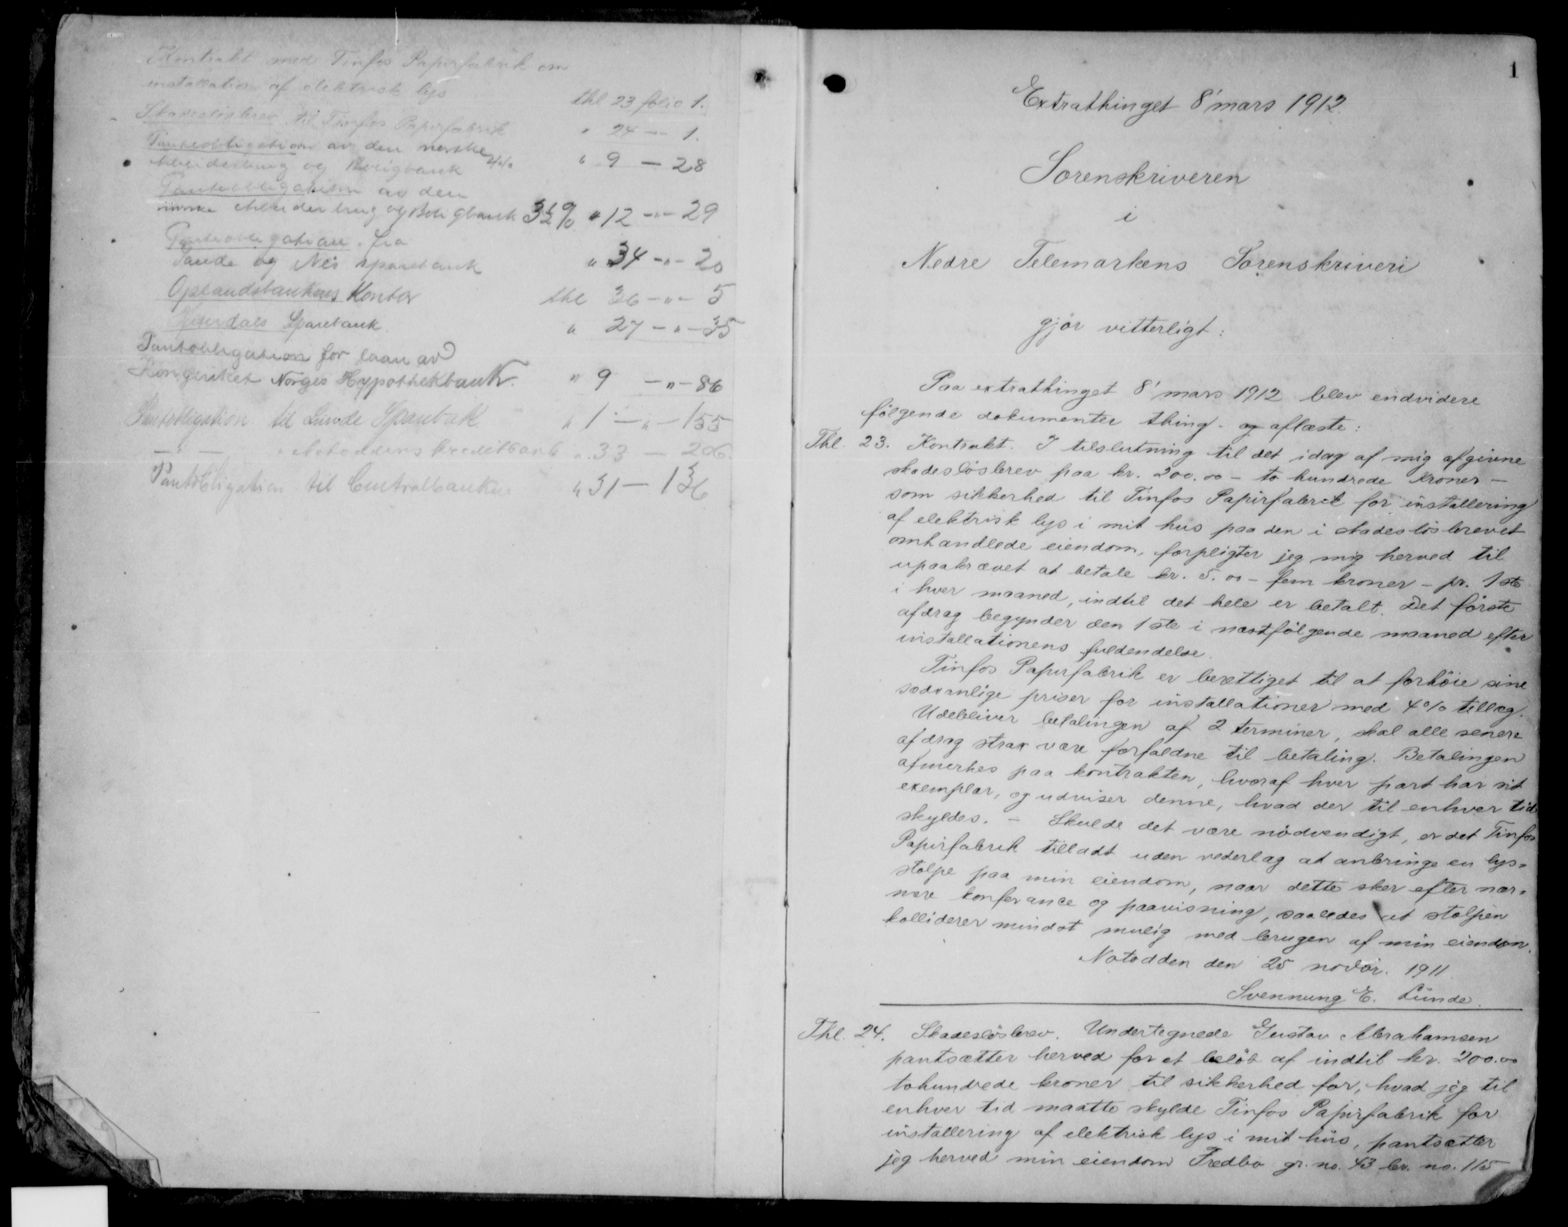 Kontrakt med Tinfos Papirfabrik om
installation af elektrisk lys thl 23 folio 1.
Skadesløsbrev til Tinfos Papirfabrik " 24 -"- 1.
Pantobligation av den norske
Arbeiderbrug og Boligbank " 9 - 28
Pantobligation av den
norske Arbeiderbrug og Boligbank 3½% " 12 -"- 29
Pantobligation fra
Sande og Nes sparebank " 34 -"- 20
Oplandsbankens Kontor thl 36 -"- 5
Sparebank " 27 -"- 35
Pantobligation for laan av
Kongeriket Norges Hypothekbank. " 9 -"- 86
Pantobligation til Lunde Sparebank " 1 -"- 155
-"- -"- Notoddens Kreditbank " 33 - 206
Pantobligation til Centralbanken " 31 - 136
1
Extrathinget 8' mars 1912
Sorenskriveren
i
Nedre Telemarkens Sorenskriveri
gjør vitterligt:
Paa extrathinget 8' mars 1912 blev endvidere
følgende dokumenter thing- og aflæste:
Thl. 23. Kontrakt. I tilslutning til det idag af mig afgivne
skadesløsbrev paa kr. 200.00 - to hundrede kroner -
som sikkerhed til Tinfos Papirfabrik for installering
af elektrisk lys i mit hus paa den i skadesløsbrevet
omhandlede eiendom, forpligter jeg mig herved til
upaakrævet at betale kr. 5.00 - fem kroner - pr. 1ste
i hver maaned, indtil det hele er betalt. Det første
afdrag begynder den 1ste i næstfølgende maaned efter
installationens fuldendelse.
Tinfos Papirfabrik er berettiget til at forhöie sine
sedvanlige priser for installationer med 4% tillæg.
Udebliver betalingen af 2 terminer, skal alle senere
afdrag strax være forfaldne til betaling. Betalingen
afmerkes paa kontrakten, hvoraf hver part har sit
exemplar, og udviser denne, hvad der til enhver tid
skyldes. - Skulde det være nödvendigt, er det Tinfos
Papirfabrik tilladt uden vederlag at anbringe en lys-
stolpe paa min eiendom, naar dette sker efter nær-
mere konferance og paavisning, saaledes at stolpen
kolliderer mindst mulig med brugen af min eiendom.
Notodden den 25 novbr. 1911.
Svennung E. Lunde.
Thl. 24. Skadesløsbrev. Undertegnede Gustav Abrahamsen
pantsætter herved for et beløb af indtil kr. 200.00
tohundrede kroner til sikkerhed for, hvad jeg til
enhver tid maatte skylde Tinfos Papirfabrik for
installering af elektrisk lys i mit hus, pantsætter
jeg herved min eiendom Fredbo gr. no. 43 br. no. 115